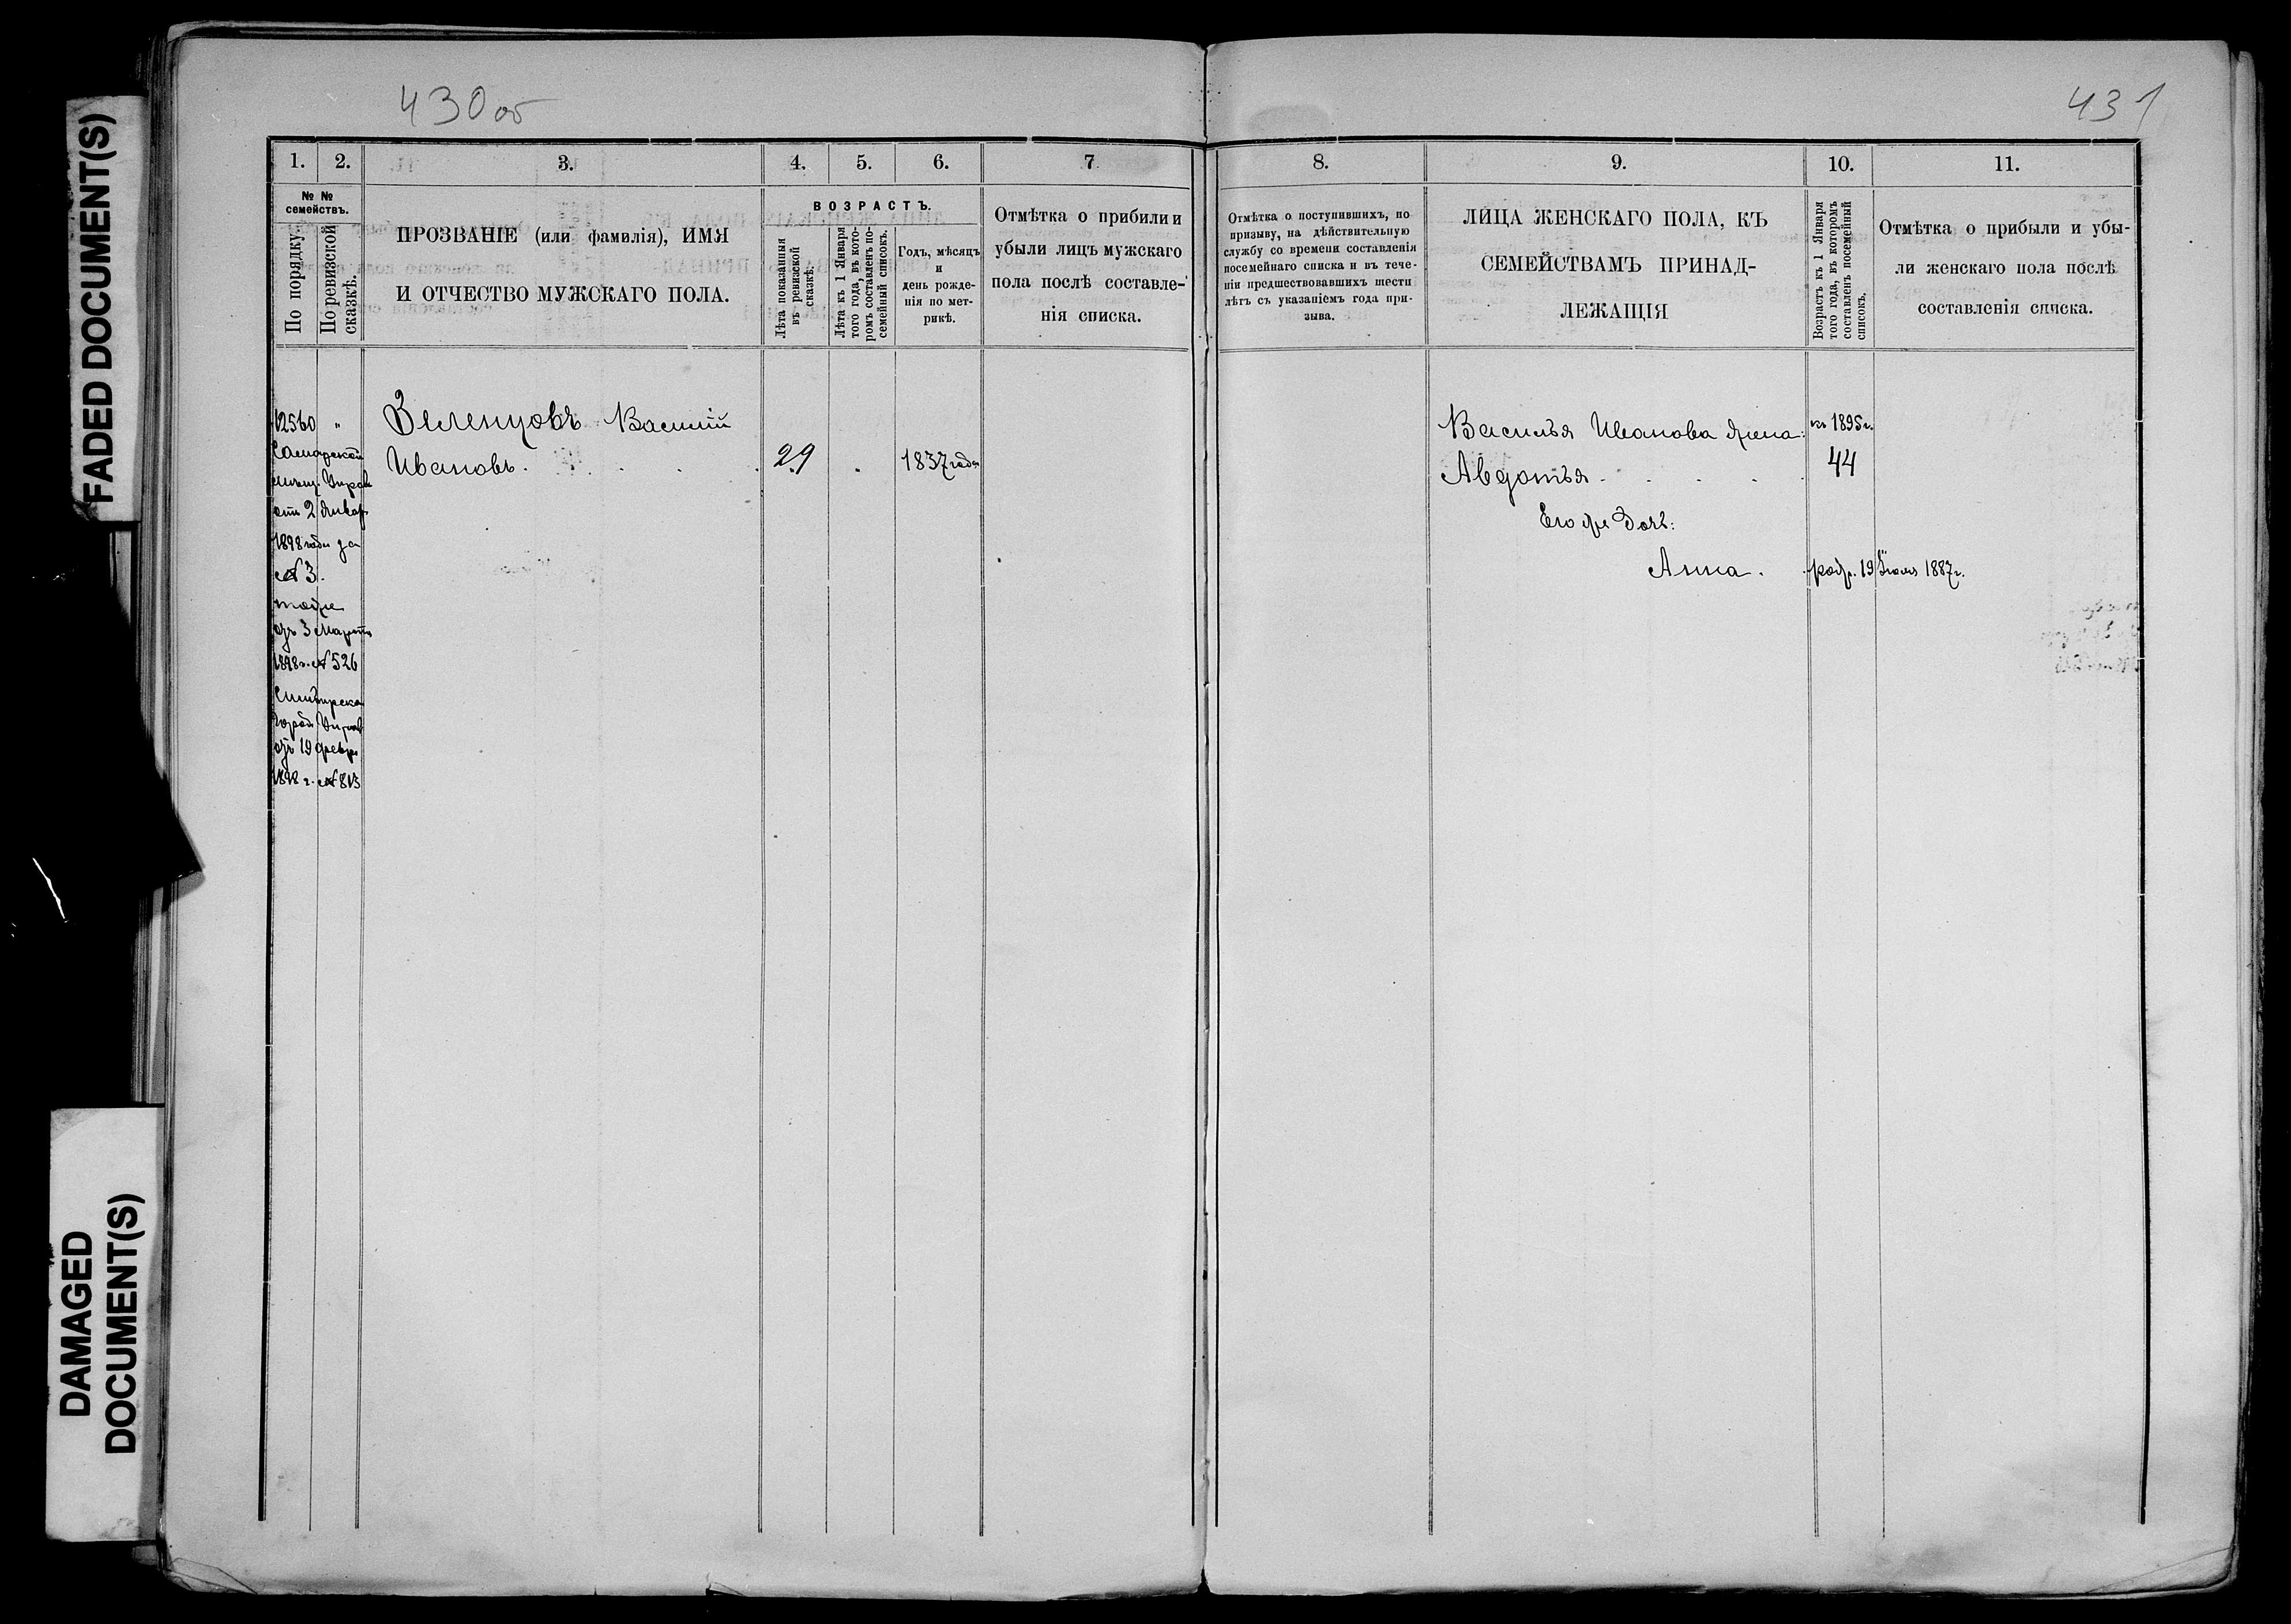 FADED DOCUMENT(S)
DAMAGED
DOCUMENT(S)
430 об
1. 2. 3. 4. 5. 6. 7.
№ №
семействъ.
По порядку.
По ревизской
сказкѣ.
ПРОЗВАНІЕ (или фамилія), ИМЯ
И ОТЧЕСТВО МУЖСКАГО ПОЛА.
ВОЗРАСТЪ.
Лѣта показанныя
въ ревизской
сказкѣ.
Лѣта къ 1 Января
того года, въ кото-
ромъ составленъ по-
семейный списокъ.
Годъ, мѣсяцъ
и
день рожде-
нія по мет-
рикѣ.
Отмѣтка о прибыли и
убыли лицъ мужскаго
пола послѣ составле-
нія списка.
12560 "
Самарской
мѣщ. Управ
отъ 2 Январ
1898 года за
№ 3.
тоже
отъ 3 Марта
1898 г. № 526
Симбирской
Город Управ
отъ 19 февр
1898 г. № 813
Зеленцовъ Василій
Ивановъ. 29 . 1837 года
431
8. 9. 10. 11.
Отмѣтка о поступившихъ, по
призыву, на дѣйствительную
службу со времени составленія
посемейнаго списка и въ тече-
ніи предшествовавшихъ шести
лѣтъ съ указаніемъ года при-
зыва.
ЛИЦА ЖЕНСКАГО ПОЛА, КЪ
СЕМЕЙСТВАМЪ ПРИНАД-
ЛЕЖАЩІЯ
Возрастъ къ 1 Января
того года, въ которомъ
составленъ посемейный
списокъ.
Отмѣтка о прибыли и убы-
ли женскаго пола послѣ
составленія списка.
Василья Иванова жена: къ 1895 г.
Авдотья . . . . 44
Его же дочь:
Анна. . рожд. 19 Іюля 1887 г.